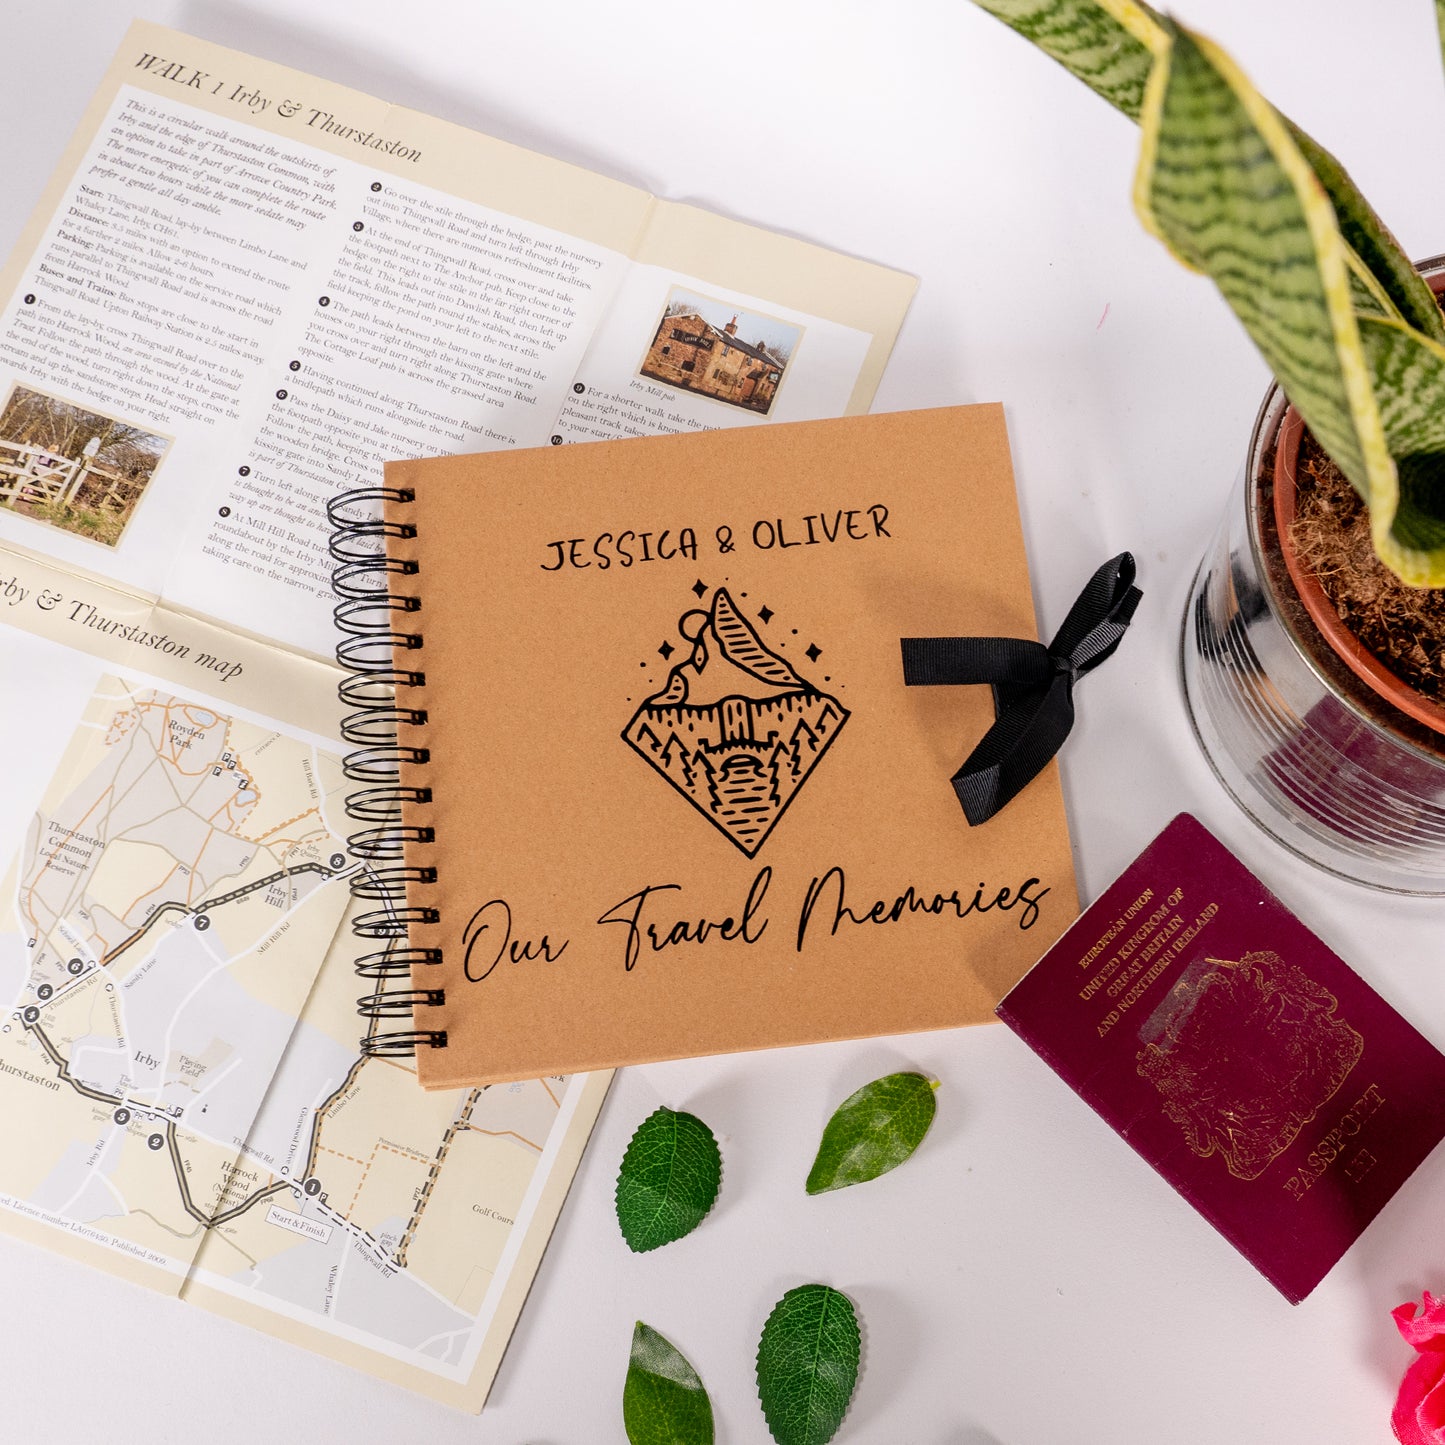 WALK 1 Irby & Thurstaston
This is a circular walk around the outskirts of
Irby and the edge of Thurstaston Common, with
an option to take in part of Arrowe Country Park.
The more energetic of you can complete the route
in about two hours while the more sedate may
prefer a gentle all day amble.
Start: Thingwall Road, lay-by between Limbo Lane and
Whaley Lane, Irby, CH61.
Distance: 3.5 miles with an option to extend the route
for a further 2 miles. Allow 2-6 hours.
Parking: Parking is available on the service road which
runs parallel to Thingwall Road and is across the road
from Harrock Wood.
Buses and Trains: Bus stops are close to the start in
Thingwall Road. Upton Railway Station is 2.5 miles away.
1 From the lay-by, cross Thingwall Road over to the
path into Harrock Wood, an area owned by the National
Trust. Follow the path through the wood. At the gate at
the end of the wood, turn right down the steps, cross the
stream and up the sandstone steps. Head straight on
wards Irby with the hedge on your right.
2 Go over the stile through the hedge, past the nursery
out into Thingwall Road and turn left through Irby
Village, where there are numerous refreshment facilities.
3 At the end of Thingwall Road, cross over and take
the footpath next to The Anchor pub. Keep close to the
hedge on the right to the stile in the far right corner of
the field. This leads out into Dawlish Road, then left up
the track, follow the path round the stables, across the
field keeping the pond on your left to the next stile.
4 The path leads between the barn on the left and the
houses on your right through the kissing gate where
you cross over and turn right along Thurstaston Road.
The Cottage Loaf pub is across the grassed area
opposite.
5 Having continued along Thurstaston Road there is
a bridlepath which runs alongside the road.
6 Pass the Daisy and Jake nursery on you
the footpath opposite you at the end
Follow the path, keeping the
the wooden bridge. Cross over
kissing gate into Sandy Lane
is part of Thurstaston Com
is thought to be an ancie
way up are thought to ha
7 Turn left along
Sandy L
laid by
8 At Mill Hill Road turn
roundabout by the Irby Mill
Turn
along the road for approxim
taking care on the narrow grass
Irby Mill pub
9 For a shorter walk take the
on the right which is know
pleasant track takes
to your start/f
10
rby & Thurstaston map
Royden
Park
entrance
Hill Bark Rd
Thurstaston
Common
Local Nature
Reserve
Irby
Quarry
8
Irby
Hill
Mill Hill Rd
7
School Lane
6
5
4
Sandy Lane
Thurstaston Rd
Thurstaston Rd
Hill
Farm
Irby
Playing
Field
hurstaston
The
Anchor
kissing
gate
stile
3
2
stile
Irby Rd
Thingwall Rd
Glenwood Drive
Limbo Lane
Harrock
Wood
(National
Trust)
1
Start & Finish
Permissive Bridleway
pinch
gap
Golf Cours
Thingwall Rd
Whaley Lane
Licence number LA076450. Published 2009.
JESSICA & OLIVER
Our Travel Memories
EUROPEAN UNION
UNITED KINGDOM OF
GREAT BRITAIN
AND NORTHERN IRELAND
PASSPORT